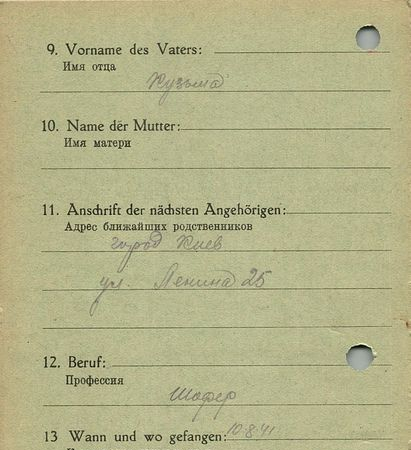 9. Vorname des Vaters:
Имя отца
Кузьма
10. Name der Mutter:
Имя матери
11. Anschrift der nächsten Angehörigen:
Адрес ближайших родственников
город Киев
ул. Ленина 25
12. Beruf:
Профессия
Шофер
13 Wann und wo gefangen: 10.8.41